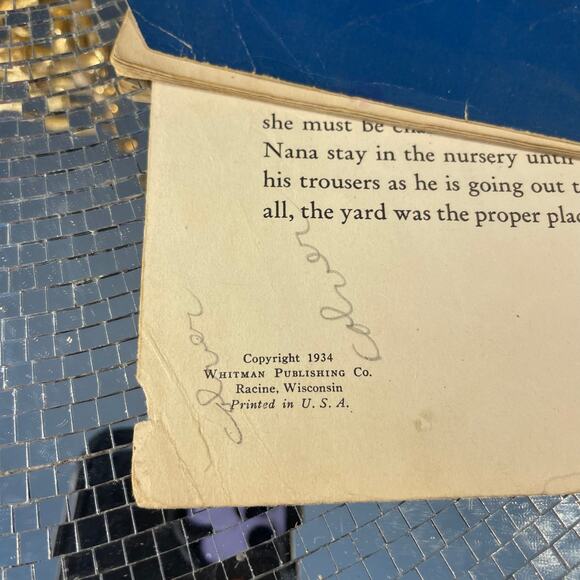 she must be
Nana stay in the nursery until
his trousers as he is going out
all, the yard was the proper
Copyright 1934
WHITMAN PUBLISHING CO.
Racine, Wisconsin
Printed in U. S. A.